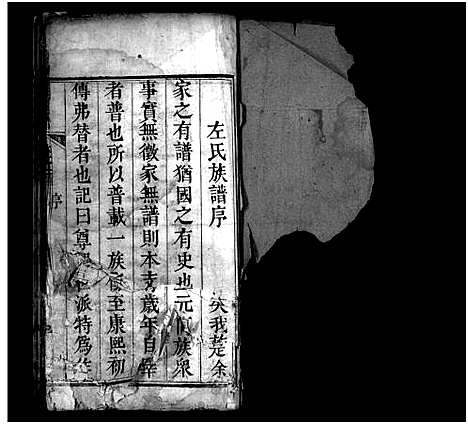 左氏族譜序
英我楚余
家之有譜猶國之有史也元 族衆
事實無徵家無譜則本支 歲年自
者普也所以普載一族 至康熙初
傳弗替者也記曰尊 派特為
序